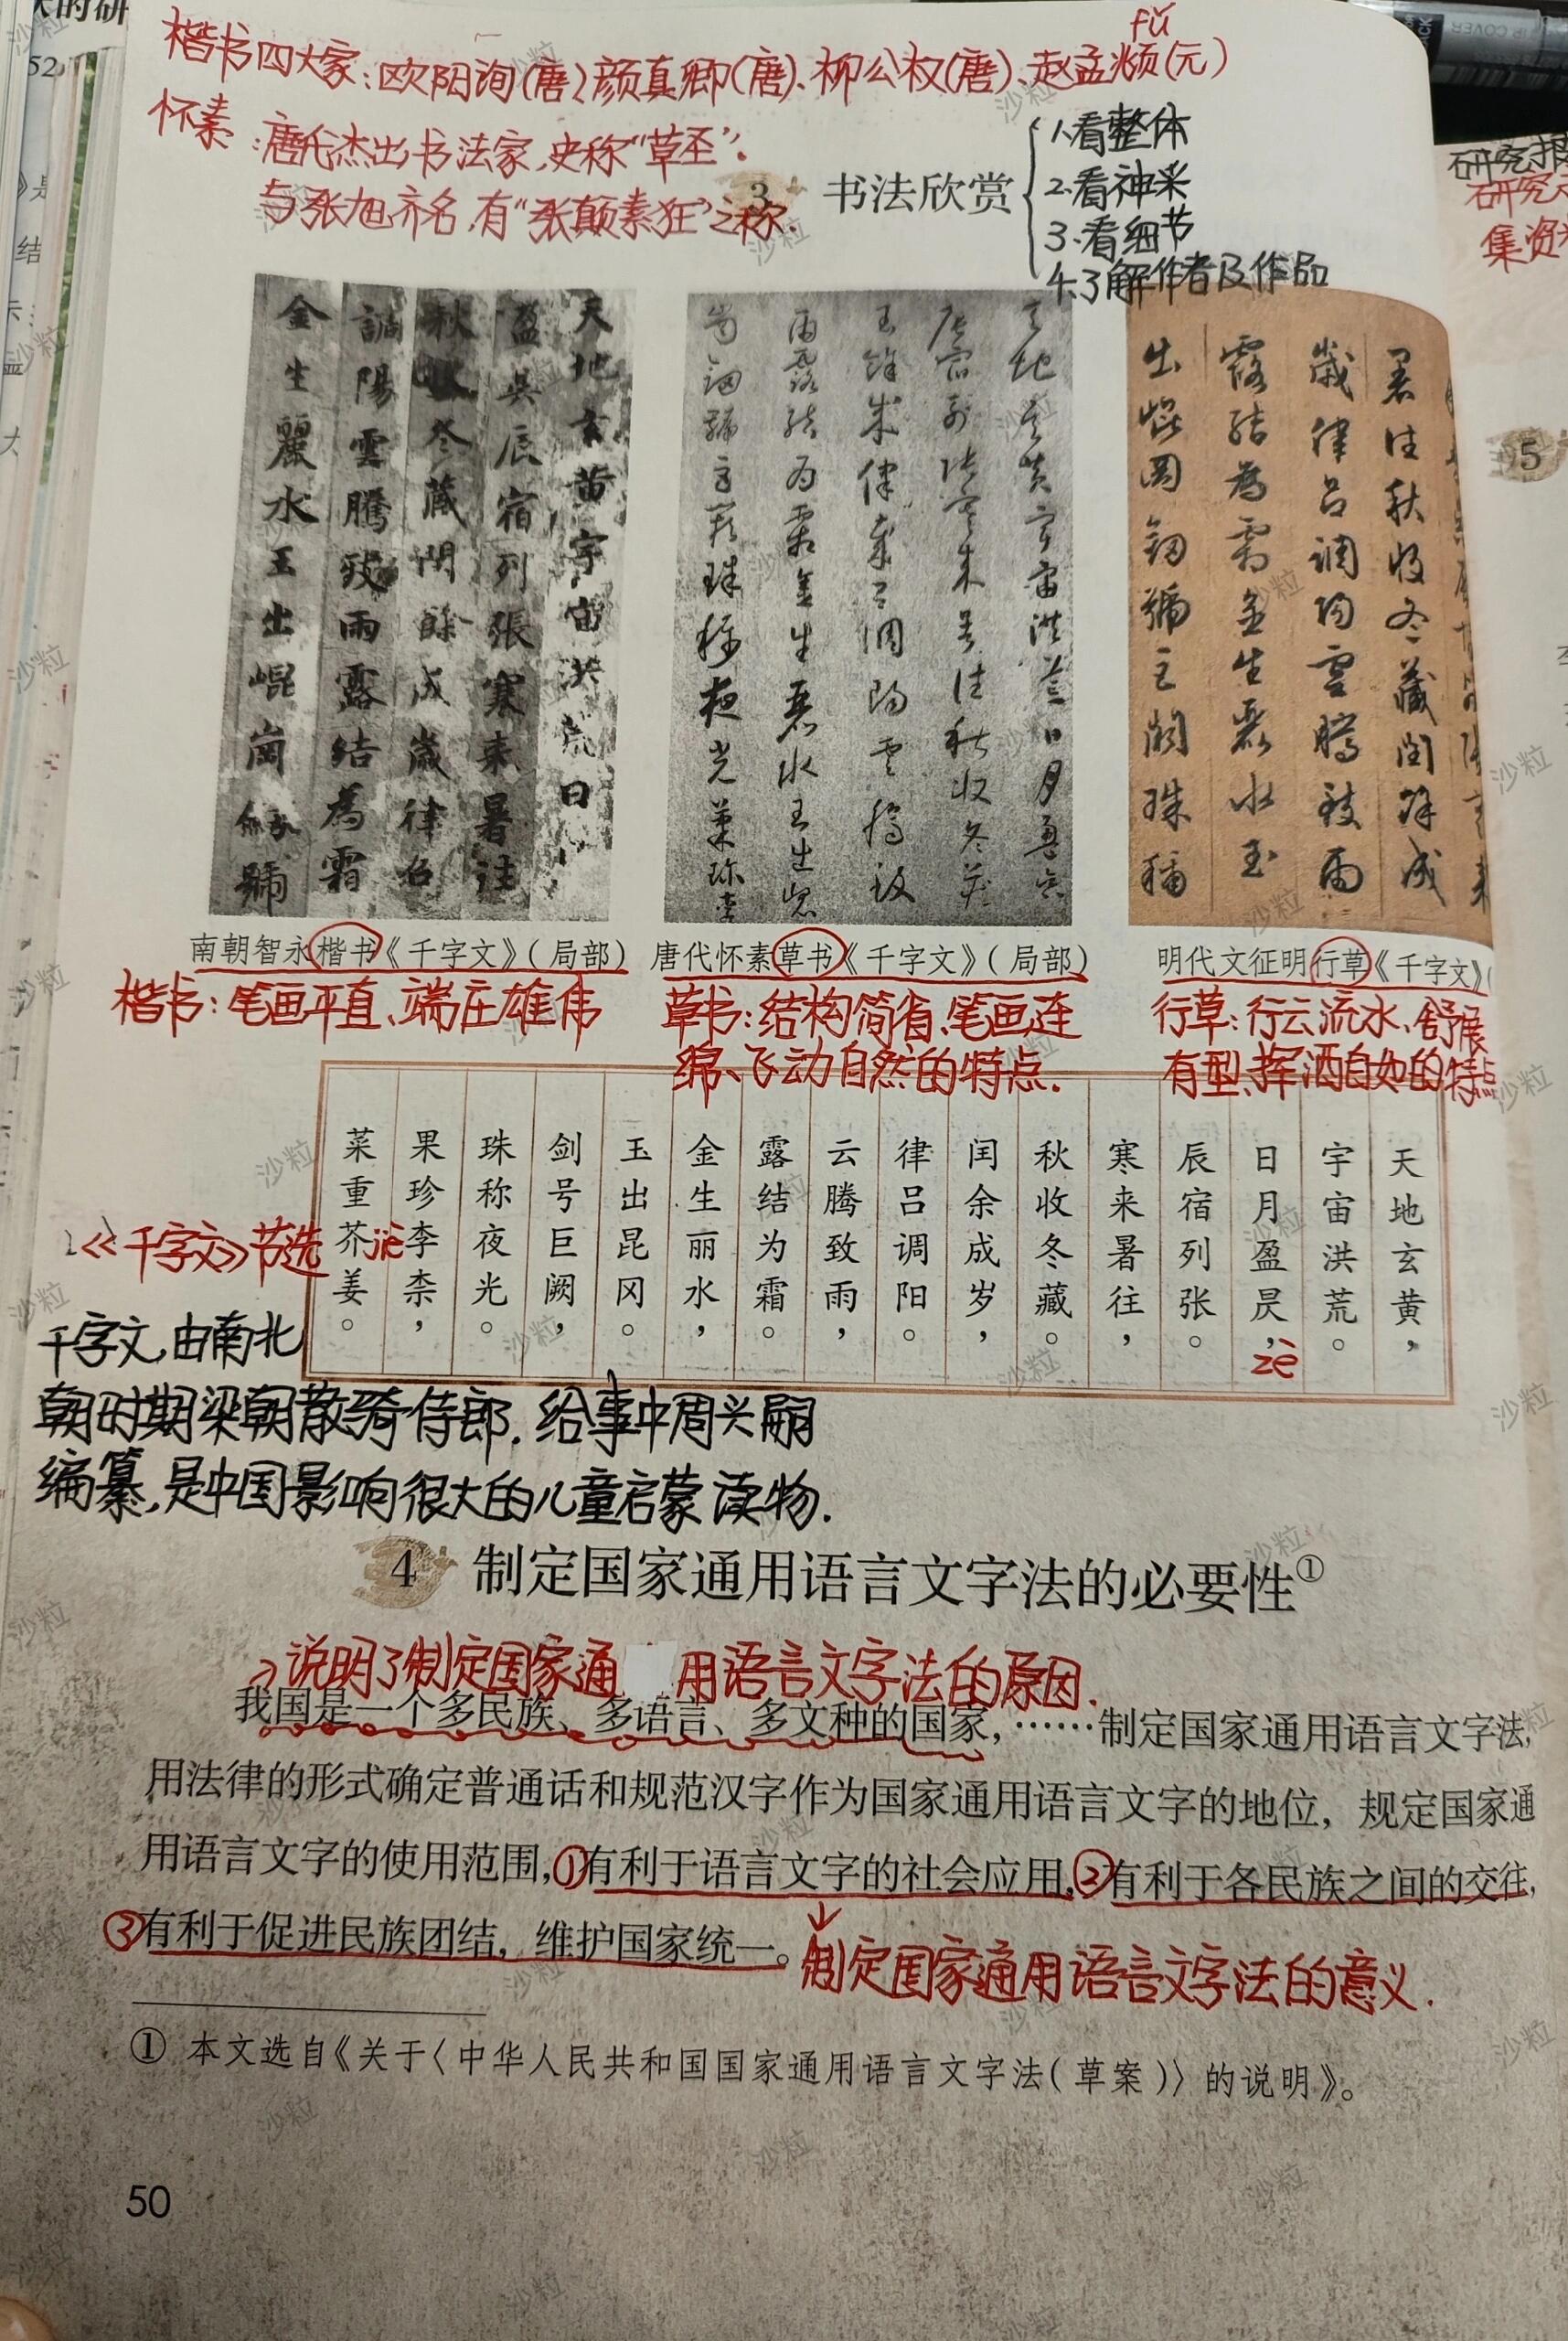 楷书四大家：欧阳询（唐）、颜真卿（唐）、柳公权（唐）、赵孟頫（元）
fǔ
怀素：唐代杰出书法家，史称“草圣”。
与张旭齐名，有“张颠素狂”之称.
3 书法欣赏
1.看整体
2.看神采
3.看细节
4.了解作者及作品
天地玄黄宇宙洪荒日
盈昃辰宿列張寒来暑往
秋收冬藏閏餘成歲律召
調陽雲騰致雨露结為霜
金生麗水玉出崐崗
南朝智永楷书《千字文》（局部）
唐代怀素草书《千字文》（局部）
明代文征明行草《千字文》（
楷书：笔画平直、端庄雄伟
草书：结构简省、笔画连
绵、飞动自然的特点.
行草：行云流水、舒展
有型、挥洒自如的特点
天地玄黄，
宇宙洪荒。
日月盈昃，
zè
辰宿列张。
寒来暑往，
秋收冬藏。
闰余成岁，
律吕调阳。
云腾致雨，
露结为霜。
金生丽水，
玉出昆冈。
剑号巨阙，
珠称夜光。
果珍李柰，
菜重芥姜。
jiè
《千字文》节选
千字文，由南北
朝时期梁朝散骑侍郎.给事中周兴嗣
编纂，是中国影响很大的儿童启蒙读物.
4 制定国家通用语言文字法的必要性①
说明了制定国家通用语言文字法的原因.
我国是一个多民族、多语言、多文种的国家，……制定国家通用语言文字法，
用法律的形式确定普通话和规范汉字作为国家通用语言文字的地位，规定国家通
用语言文字的使用范围，①有利于语言文字的社会应用，②有利于各民族之间的交往，
③有利于促进民族团结，维护国家统一。
制定国家通用语言文字法的意义.
① 本文选自《关于〈中华人民共和国国家通用语言文字法（草案）〉的说明》。
50
52
5
研究报
研究
集资
沙粒